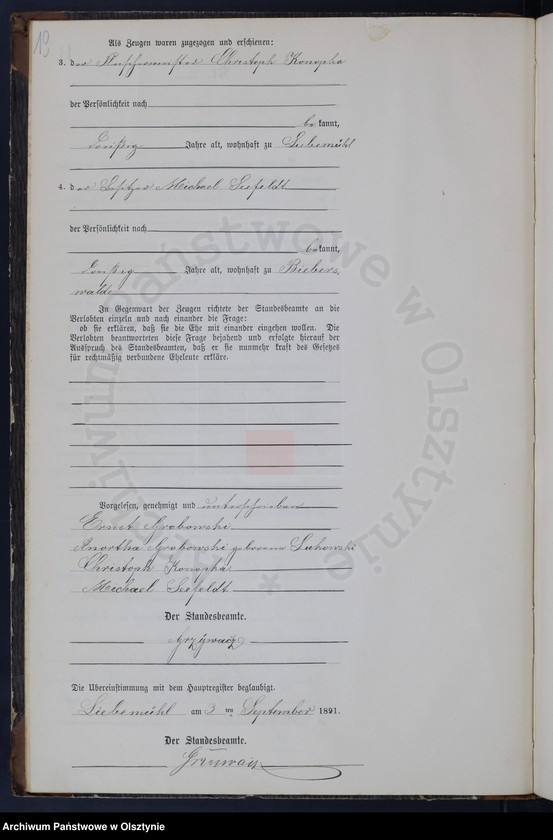 19
Als Zeugen waren zugezogen und erschienen:
3. der Christoph Konopha
der Persönlichkeit nach
be kannt,
dreißig Jahre alt, wohnhaft zu Liebemühl
4. der Besitzer Michael Seefeldt
der Persönlichkeit nach
be kannt,
dreißig Jahre alt, wohnhaft zu Biebers
walde
In Gegenwart der Zeugen richtete der Standesbeamte an die
Verlobten einzeln und nach einander die Frage:
ob sie erklären, daß sie die Ehe mit einander eingehen wollen. Die
Verlobten beantworteten diese Frage bejahend und erfolgte hierauf der
Ausspruch des Standesbeamten, daß er sie nunmehr kraft des Gesetzes
für rechtmäßig verbundene Eheleute erkläre.
Vorgelesen, genehmigt und unterschrieben
Ernst Grabowski
Grabowski geborene
Christoph Konopha
Michael Seefeldt
Der Standesbeamte.
Grzywacz
Die Übereinstimmung mit dem Hauptregister beglaubigt.
Liebemühl am 3 ten September 1891.
Der Standesbeamte.
Archiwum Państwowe w Olsztynie